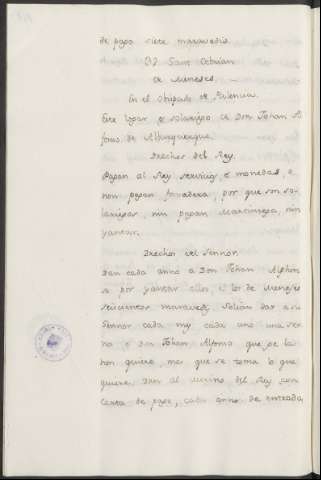 de papo siete maravedis.
Sant Cebrian
de Meneses. —
En el Obispado de Palencia.
Este logar es solariego de Don Johan Al
fonso de Alburquerque.
Derechos del Rey.
Pagan al Rey servicios e monedas, e
non pagan fonsadera, por que son so-
lariegos, nin pagan Martiniega, nin
yantar.
Derechos del Sennor.
Dan cada anno a Don Johan Alphon
so por yantar ellos, e los de Meneses
seiscientos maravedis, solian dar a su
Sennor cada uno una ser
na e Don Johan Alfonso que ge la
non quiere, mas que se toma lo que
quiere. Dan al merino del Rey con
carta de pago, cada anno de entrada,